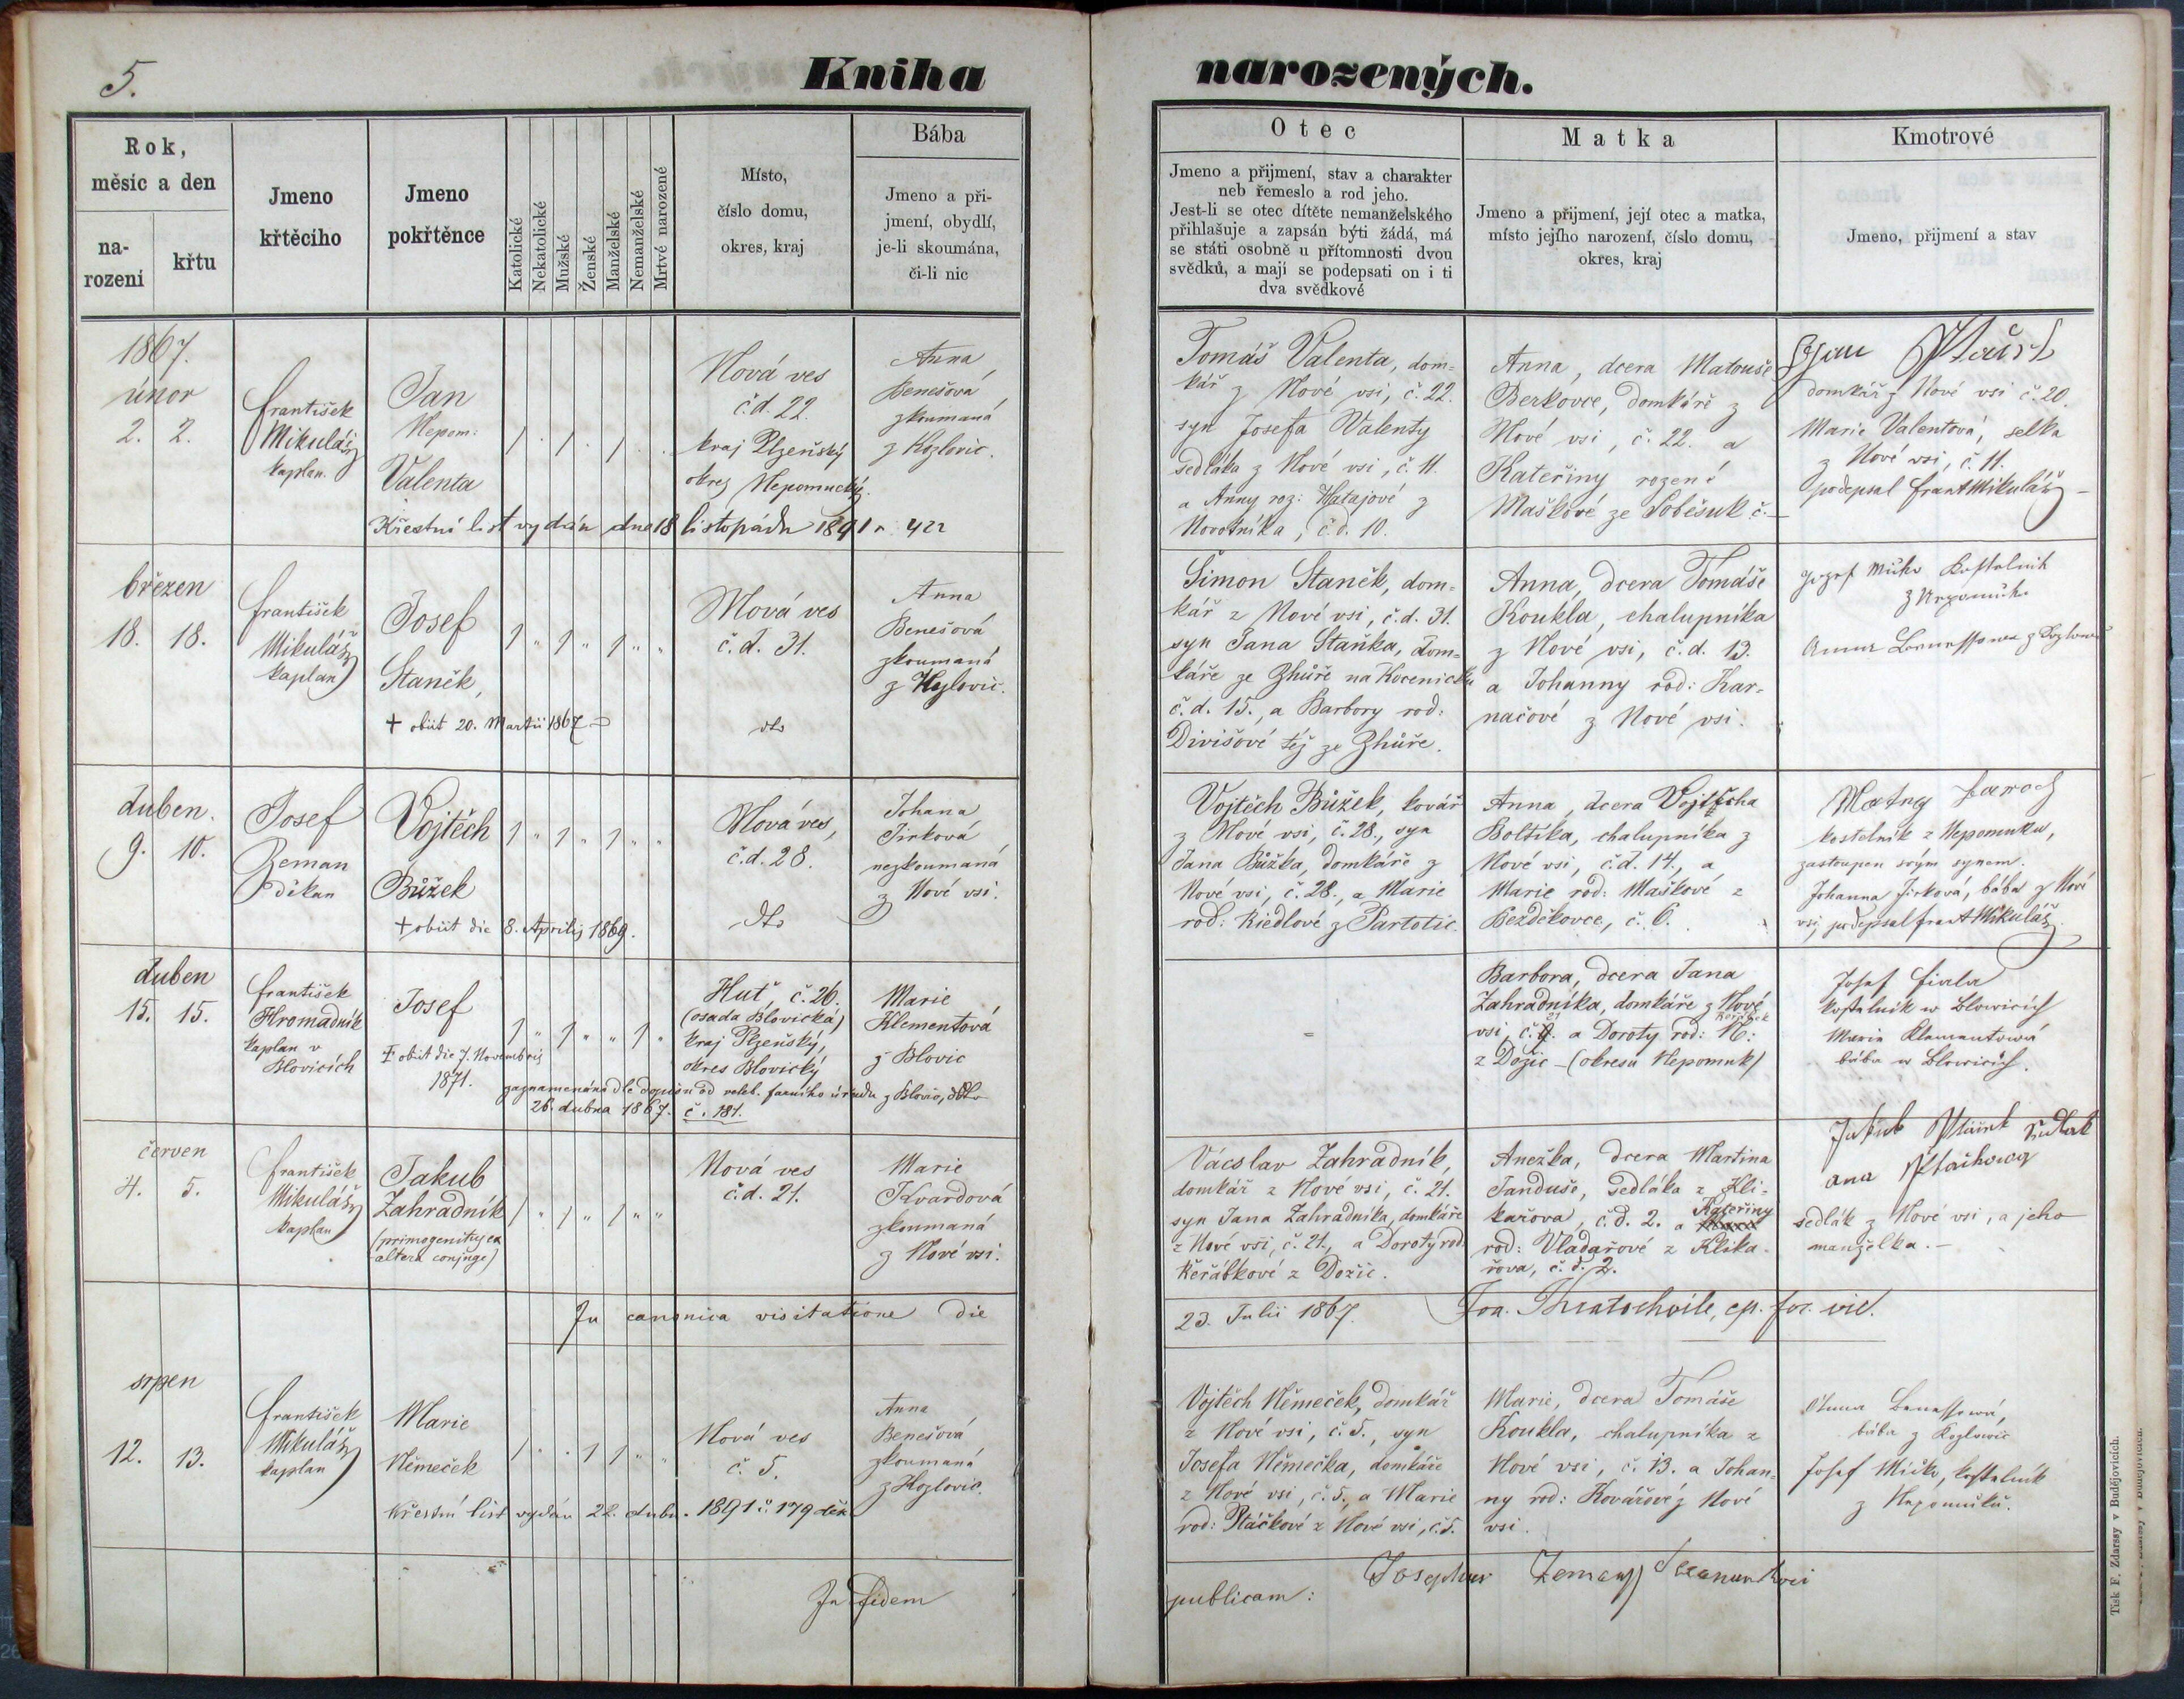 5.
Kniha narozených.
Rok,
měsíc a den
na-
rozeni
křtu
Jmeno
křtěcího
Jmeno
pokřtěnce
Katolické
Nekatolické
Mužské
Ženské
Manželské
Nemanželské
Mrtvé narozené
Místo,
číslo domu,
okres, kraj
Bába
Jmeno a při-
jmení, obydlí,
je-li skoumána,
či-li nic
Otec
Jmeno a přijmení, stav a charakter
neb řemeslo a rod jeho.
Jest-li se otec dítěte nemanželského
přihlašuje a zapsán býti žádá, má
se státi osobně u přítomnosti dvou
svědků, a mají se podepsati on i ti
dva svědkové
Matka
Jmeno a přijmení, její otec a matka,
místo jejího narození, číslo domu,
okres, kraj
Kmotrové
Jmeno, přijmení a stav
1867.
únor
2. 2.
František
Mikuláš
kaplan.
Jan
Nepom:
Valenta
Nová ves
č.d. 22.
kraj Plzeňský
okres Nepomucký.
Anna
Benešová
zkoumaná
z Kozlovic.
Křestní list vydán dne 18 listopadu 1891 n: 422
Tomáš Valenta, dom=
kář z Nové vsi, č. 22.
syn Josefa Valenty
sedláka z Nové vsi, č. 11.
a Anny roz: Hatajové z
Novotníka, č.d. 10.
Anna, dcera Matouše
Berkovce, domkáře z
Nové vsi, č. 22. a
Kateřiny rozené
Maškové ze Soběsuk č.
Jan
domkář z Nové vsi č. 20.
Marie Valentová, selka
z Nové vsi, č. 11.
podepsal Frant Mikuláš
březen
18. 18.
František
Mikuláš
kaplan
Josef
Staněk,
+ obiit 20. Martii 1867
Nová ves
č.d. 31.
dto
Anna
Benešová
zkoumaná
z Kozlovic.
Šimon Staněk, dom=
kář z Nové vsi, č.d. 31.
syn Jana Staňka, dom=
káře ze Zhůře na Kocenicku
č.d. 15., a Barbory rod:
Divišové též ze Zhůře.
Anna, dcera Tomáše
Koukla, chalupníka
z Nové vsi, č.d. 13.
a Johanny rod: Kar=
načové z Nové vsi.
Jozef Mičko Kostelnik
z Nepomuka
Anna Benessowa z Kozlowic
duben.
9. 10.
Josef
Zeman
děkan
Vojtěch
Bůžek
+ obiit die 8. Aprilis 1869.
Nová ves,
č.d. 28.
dto
Johana
Jirková
nezkoumaná
z Nové vsi.
Vojtěch Bůžek, kovář
z Nové vsi, č. 28., syn
Jana Bůžka, domkáře z
Nové vsi, č. 28., a Marie
rod: Riedlové z Partotic.
Anna, dcera Vojtěcha
Boltíka, chalupníka z
Nové vsi, č.d. 14., a
Marie rod: Maškové z
Bezděkovce, č. 6.
kostelník z Nepomuku,
zastoupen svým synem.
Johanna Jirková, bába z Nové
vsi, podepsal Frant Mikuláš
duben
15. 15.
František
Hromadník
kaplan v
Blovicích
Josef
† obiit die 7. Novembris
1871.
Huť, č. 26.
(osada Blovická)
kraj Plzeňský,
okres Blovický
Marie
Klementová
z Blovic
zaznamenáno dle dopisu od veleb. farního úřadu z Blovic, ddto
26. dubna 1867. č. 181.
Barbora, dcera Jana
Zahradníka, domkáře z Nové
vsi, č. 21 a Doroty rod: N:
z Dožic - (okresu Nepomuk)
Josef Fiala
kostelnik w Blowicích
Marie Klementowá
bába w Blowicích.
červen
4. 5.
František
Mikuláš
kaplan
Jakub
Zahradník
(primogenitus ex
altera conjuge)
Nová ves
č.d. 21.
Marie
Kvardová
zkoumaná
z Nové vsi.
Vácslav Zahradník,
domkář z Nové vsi, č. 21.
syn Jana Zahradníka, domkáře
z Nové vsi, č. 21., a Doroty rod.
Keřábkové z Dožic.
Anežka, dcera Martina
Janduše, sedláka z Kli=
kařova, č.d. 2. a Kateřiny
rod: Vladařové z Klika-
řova, č.d. 2.
Jakub
ana
sedlák z Nové vsi, a jeho
manželka.
In canonica visitatione die
23. Julii 1867. Jos. Khratochvile, ep. for. vic.
srpen
12. 13.
František
Mikuláš
kaplan
Marie
Němeček
Nová ves
č. 5.
Anna
Benešová
zkoumaná
z Kozlovic.
Křestní list vydán 22. dubn. 1891 č: 179 děk
Vojtěch Němeček, domkář
z Nové vsi, č. 5., syn
Josefa Němečka, domkáře
z Nové vsi, č. 5, a Marie
rod: Ptáčkové z Nové vsi, č. 5.
Marie, dcera Tomáše
Koukla, chalupníka z
Nové vsi, č. 13. a Johan=
ny rod: Kovářové z Nové
vsi.
Anna Benessowá,
bába z Kozlowic
Josef Mičko, kostelník
z Nepomuku.
In fidem
publicam: Josephus Zeman
Tisk F. Zdarssy v Budějovicích.